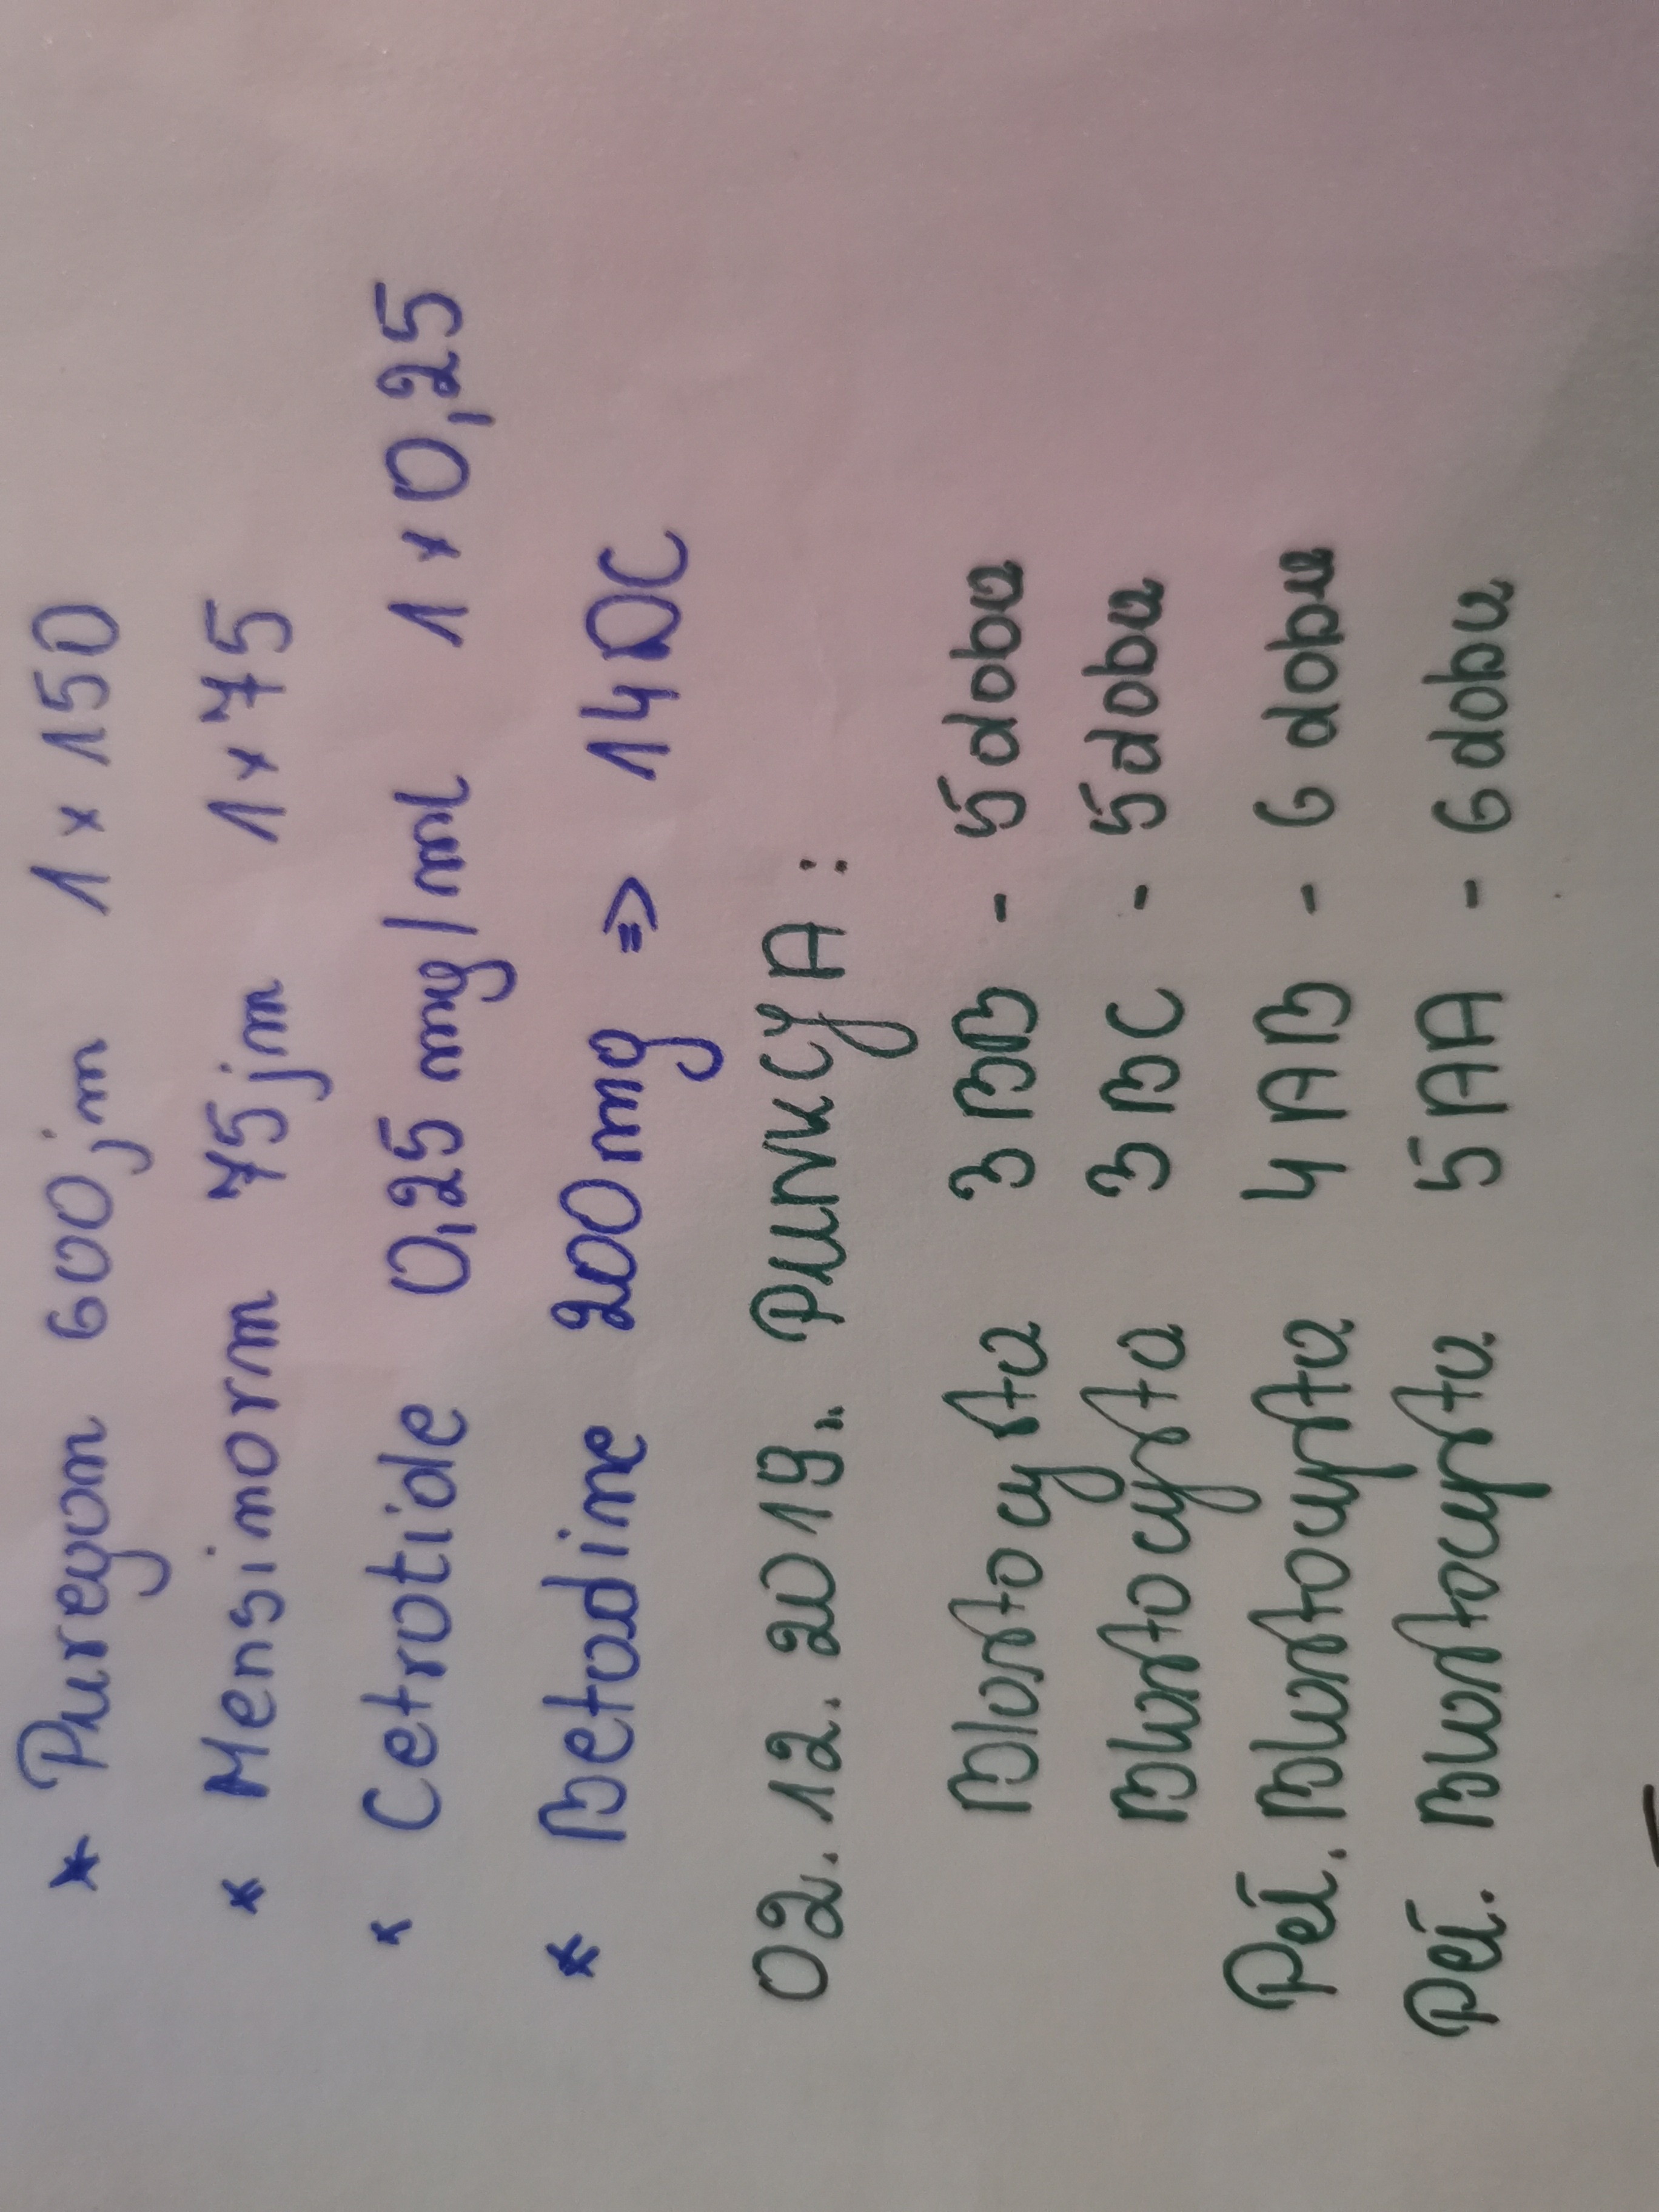 * Puregon 600 jm 1 x 150
* Mensinorm 75 jm 1 x 75
* Cetrotide 0,25 mg/ml 1 x 0,25
* Betadine 200 mg => 14 DC
02. 12. 2019. PUNKCYJA:
Blastocysta 3 BB - 5 doba
Blastocysta 3 BC - 5 doba
Peł. Blastocysta 4 AB - 6 doba
Peł. Blastocysta 5 AA - 6 doba